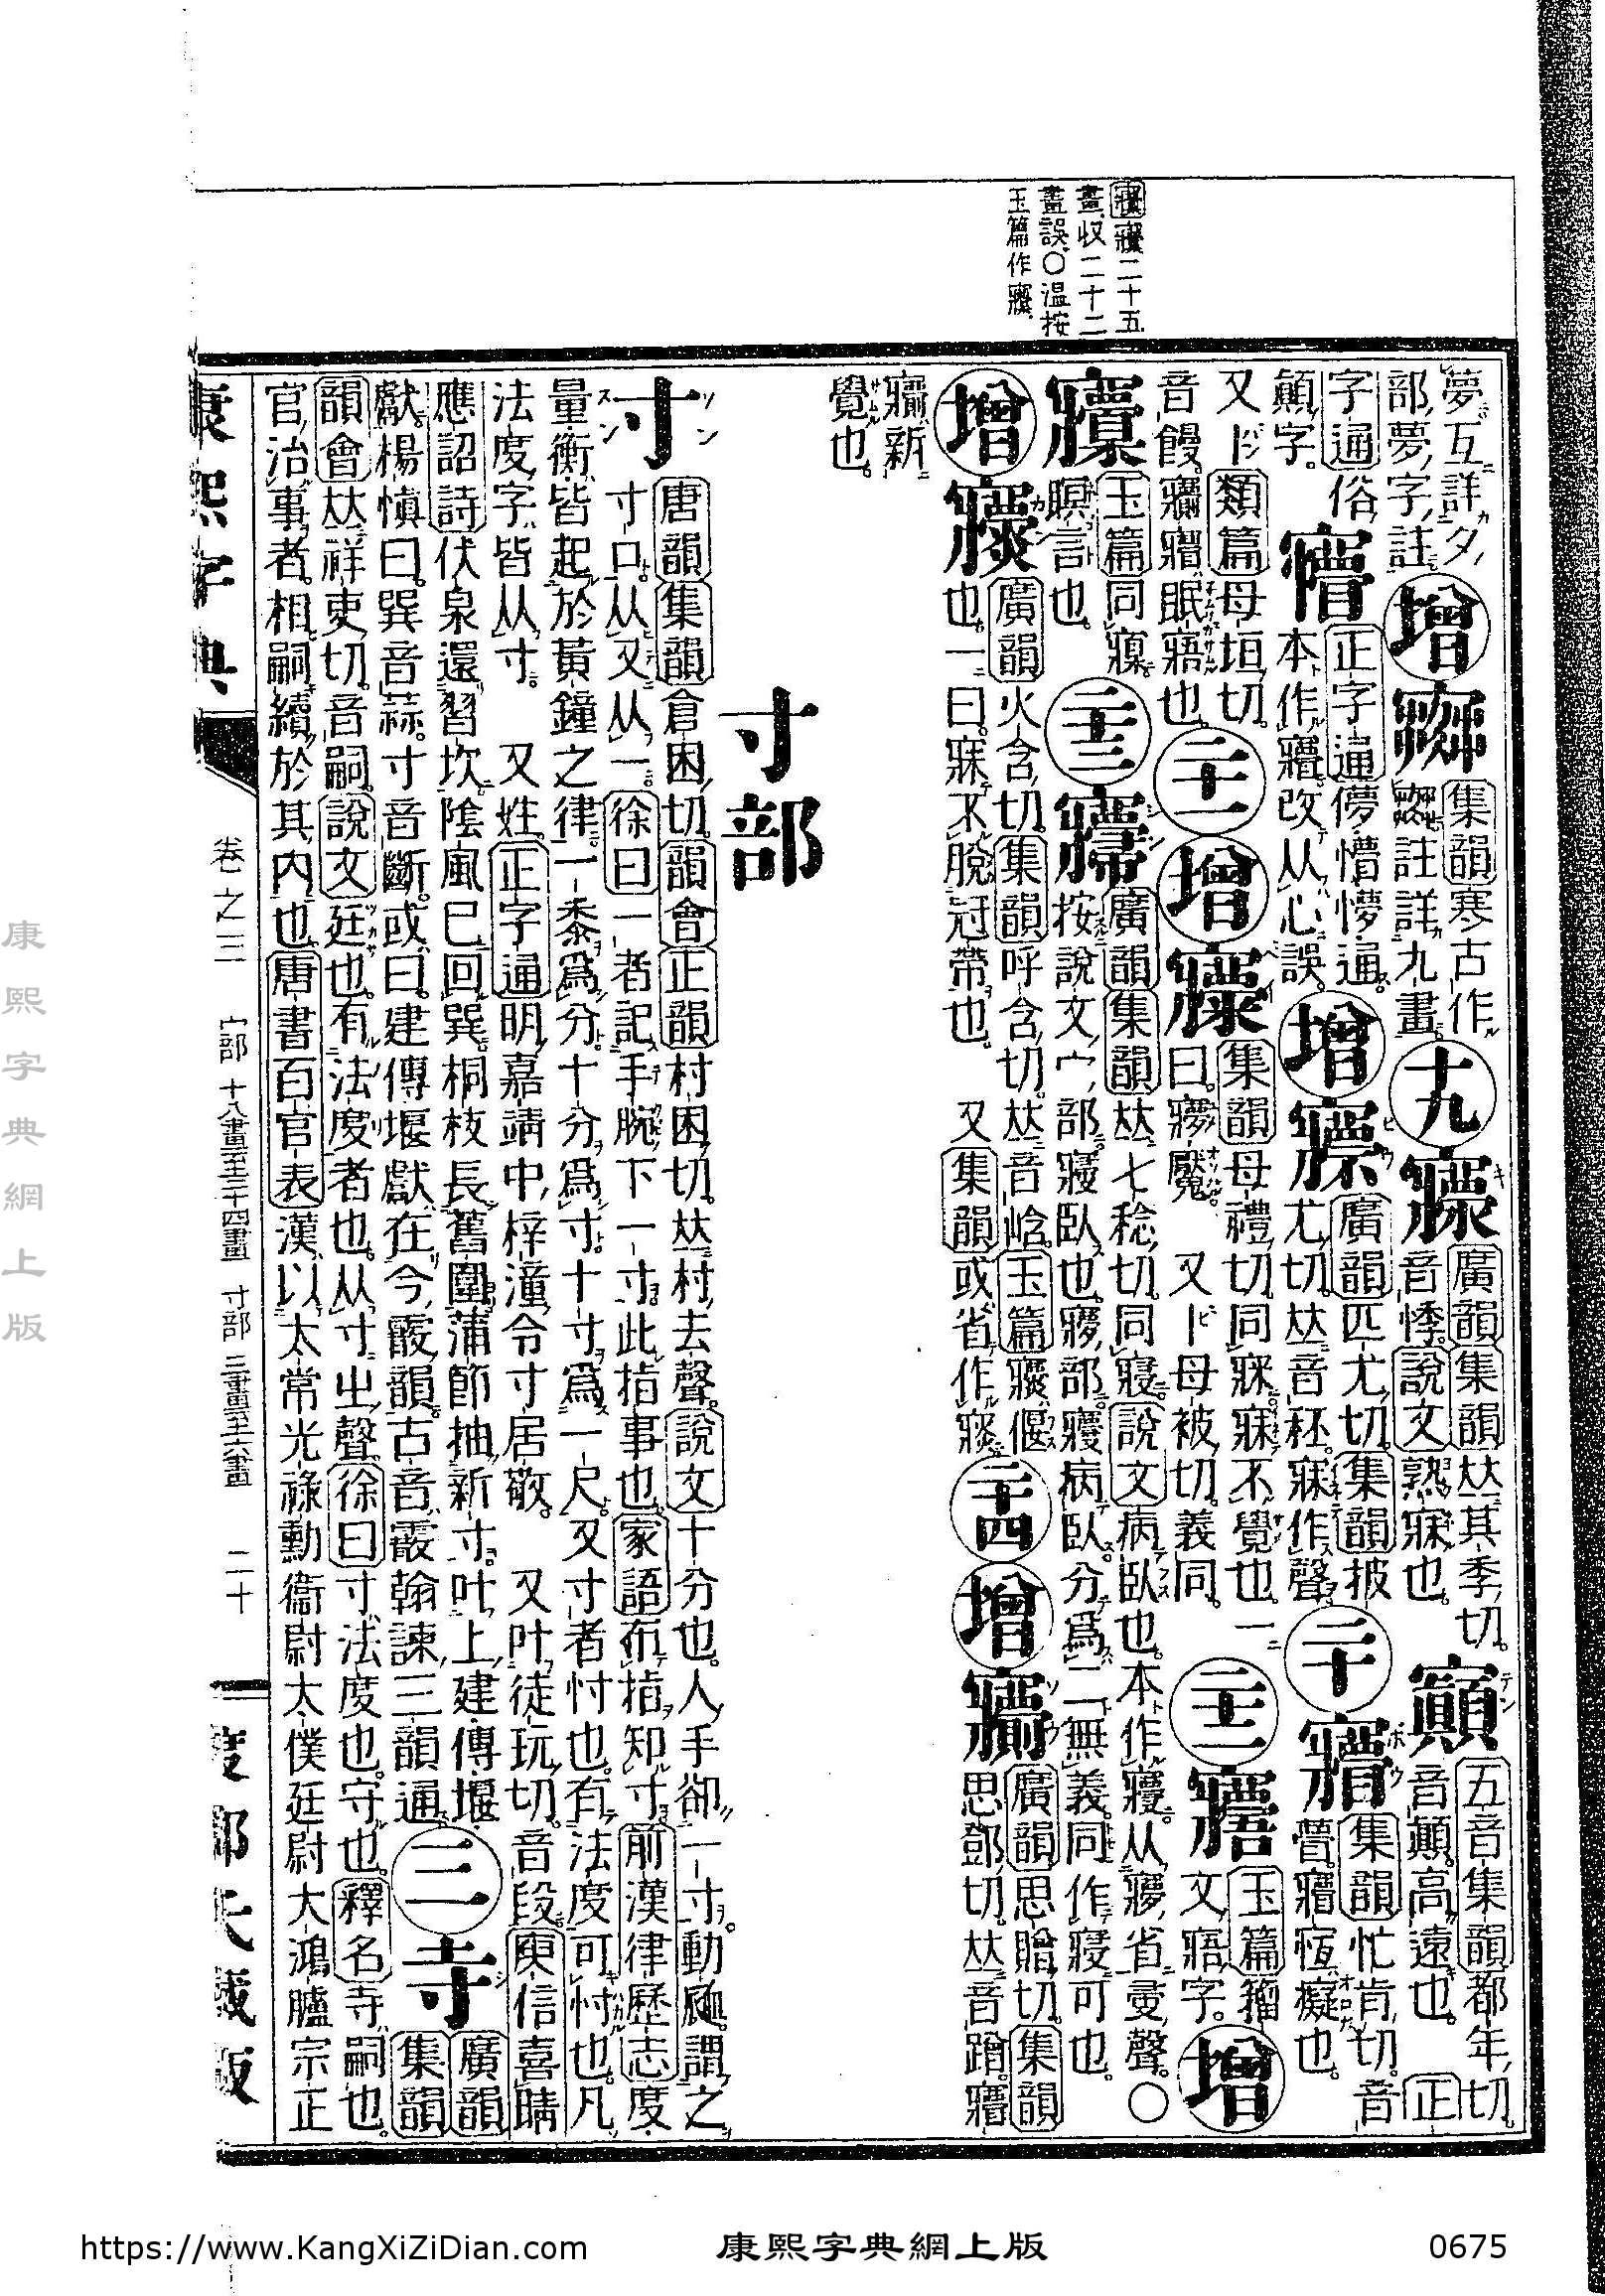 二十五
畫收二十二
畫誤○温按
玉篇作
夢互詳夕
部夢字註
增
集韻寒古作
註詳九畫
十九
㝱
廣韻集韻𠀤其季切
音悸說文熟寐也
五音集韻都年切
音顛高遠也 正
字通俗
顛字
正字通儚懵懜通
本作 改从心誤
增
廣韻匹尤切集韻披
尤切𠀤音秠寐作聲
二十
集韻忙肯切音
瞢 恆癡也
又卜類篇母垣切
音饅 眠寤也
二十一
增
集韻母禮切同寐寐不覺也一
曰 魘 又卜母被切義同
二十二
玉篇籀
文寤字
增
玉篇同
瞑言也
二十三
廣韻集韻𠀤七稔切同寢說文病臥也本作 从 省 聲○
按說文宀部寑臥也㝱部 病臥分爲二無義同作寢可也
增
廣韻火含切集韻呼含切𠀤音峆玉篇 偃
也一曰寐不脫冠帶也 又集韻或省作
二十四
增
廣韻思贈切集韻
思鄧切𠀤音蹭
新
覺也
寸部
寸
唐韻集韻倉困切韻會正韻村困切𠀤村去聲說文十分也人手卻一寸動𧖴謂之
寸口从又从一徐曰一者記手腕下一寸此指事也家語布指知寸前漢律歷志度
量衡皆起於黃鐘之律一黍爲分十分爲寸十寸爲一尺又寸者忖也有法度可忖也凡
法度字皆从寸 又姓正字通明嘉靖中梓潼令寸居敬 又叶徒玩切音段庾信喜晴
應詔詩伏泉還習坎陰風巳回巽桐枝長舊圍蒲節抽新寸叶上建傳堰
獻楊愼曰巽音蒜寸音斷或曰建傳堰獻在今霰韻古音霰翰諫三韻通
三
寺
廣韻
集韻
韻會𠀤祥吏切音嗣說文廷也有法度者也从寸㞢聲徐曰寸法度也守也釋名寺嗣也
官治事者相嗣續於其內也唐書百官表漢以太常光祿勳衞尉太僕廷尉大鴻臚宗正
康熙字典
卷之三 宀部 十八畫至二十四畫 寸部 三畫至六畫 二十
康熙字典網上版
https://www.KangXiZiDian.com
康熙字典網上版
0675